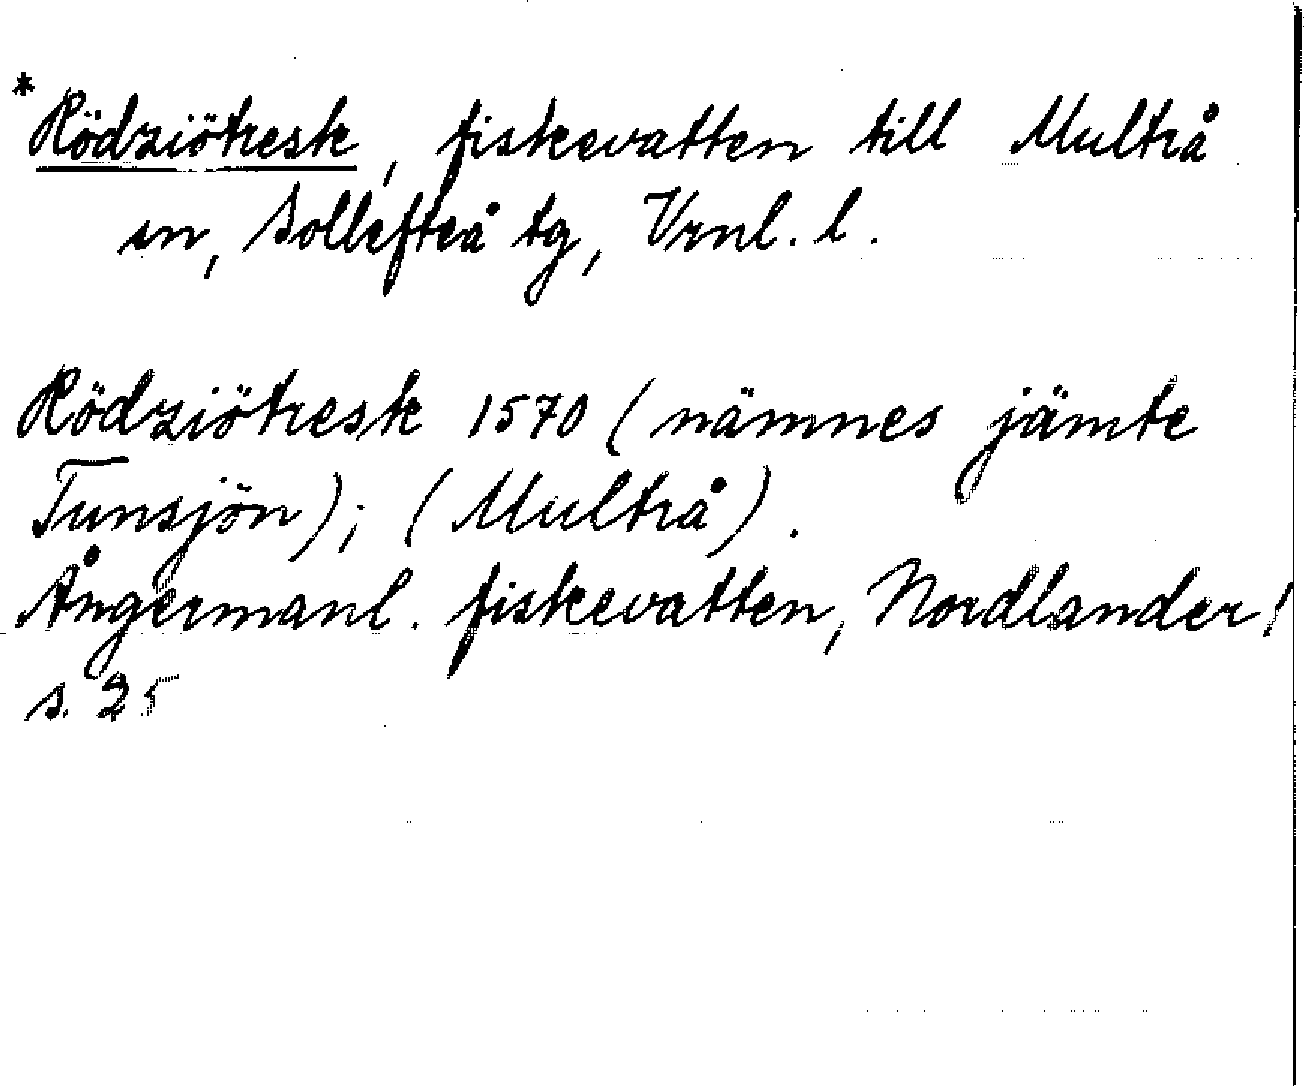 *Rödziötresk, fiskevatten till Multrå
sn, Sollefteå tg, Vrnl. l.
Rödziötresk 1570 (nämnes jämte
Tunsjön); (Multrå).
Ångermanl. fiskevatten, Nordlander!
s. 25